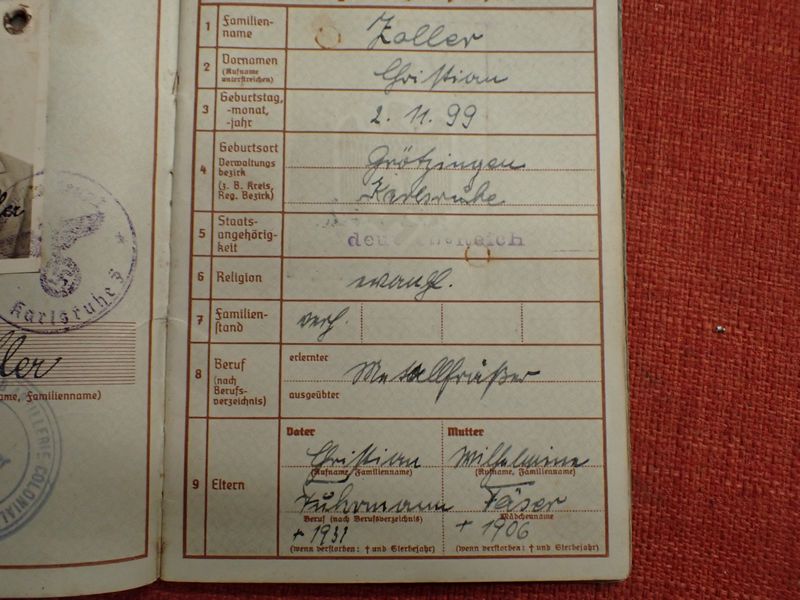 ller
Karlsruhe
ller
me, Familienname)
COLONIAL
1 Familien-
name
Zoller
2 Vornamen
(Rufname
unterstreichen)
Christian
3 Geburtstag,
-monat,
-jahr
2. 11. 99
4 Geburtsort
Verwaltungs
bezirk
(z. B. Kreis,
Reg. Bezirk)
Grötzingen
Karlsruhe
5 Staats-
angehörig-
keit
Reich
6 Religion
evangl.
7 Familien-
stand
verh.
8 Beruf
(nach
Berufs-
verzeichnis)
erlernter
Metallfräßer
ausgeübter
9 Eltern
Vater
Christian
(Rufname, Familienname)
Fuhrmann
Beruf (nach Berufsverzeichnis)
+ 1931
(wenn verstorben: † und Sterbejahr)
Mutter
Wilhelmine
(Rufname, Familienname)
Mädchenname
+ 1906
(wenn verstorben: † und Sterbejahr)